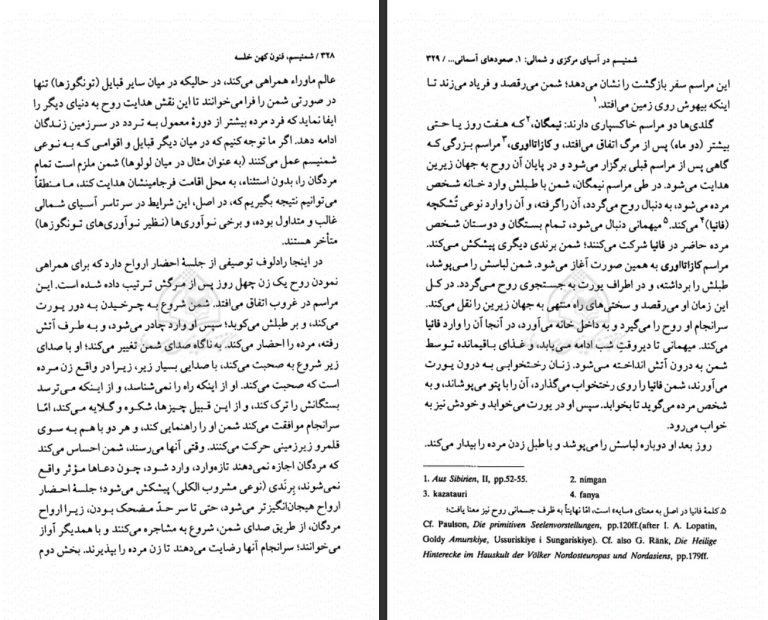 ۳۲۸ / شمنیسم، فنون کهن خلسه
عالم ماوراء همراهی می‌کند، در حالیکه در میان سایر قبایل (تونگوزها) تنها
در صورتی شمن را فرا می‌خوانند تا این نقش هدایت روح به دنیای دیگر را
ایفا نماید که فرد مرده بیشتر از دورهٔ معمول به تردد در سرزمین زندگان
ادامه دهد. اگر ما توجه کنیم که در میان دیگر قبایل و اقوامی که به نوعی
شمنیسم عمل می‌کنند (به عنوان مثال در میان لولوها) شمن ملزم است تمام
مردگان را، بدون استثناء، به محل اقامت فرجامینشان هدایت کند، ما منطقاً
می‌توانیم نتیجه بگیریم که، در اصل، این شرایط در سرتاسر آسیای شمالی
غالب و متداول بوده، و برخی نوآوری‌ها (نظیر نوآوری‌های تونگوزها)
متأخر هستند.
در اینجا رادلوف توصیفی از جلسهٔ احضار ارواح دارد که برای همراهی
نمودن روح یک زن چهل روز پس از مرگش ترتیب داده شده است. این
مراسم در غروب اتفاق می‌افتد. شمن شروع به چرخیدن به دور یورت
می‌کند، و بر طبلش می‌کوبد؛ سپس او وارد چادر می‌شود، و به طرف آتش
رفته، مرده را احضار می‌کند. به ناگاه صدای شمن تغییر می‌کند؛ او با صدای
زیر شروع به صحبت می‌کند، با صدایی بسیار زیر، زیرا در واقع زن مرده
است که صحبت می‌کند. او از اینکه راه را نمی‌شناسد، و از اینکه می‌ترسد
بستگانش را ترک کند، و از این قبیل چیزها، شکوه و گلایه می‌کند، امّا
سرانجام موافقت می‌کند شمن او را راهنمایی کند، و هر دو با هم به سوی
قلمرو زیرزمینی حرکت می‌کنند. وقتی آنها می‌رسند، شمن احساس می‌کند
که مردگان اجازه نمی‌دهند تازه‌وارد، وارد شود، چون دعاها مؤثر واقع
نمی‌شوند، برَندی (نوعی مشروب الکلی) پیشکش می‌شود؛ جلسهٔ احضار
ارواح هیجان‌انگیزتر می‌شود، حتی تا سر حدّ مضحک بودن، زیرا ارواح
مردگان، از طریق صدای شمن، شروع به مشاجره می‌کنند و با همدیگر آواز
می‌خوانند؛ سرانجام آنها رضایت می‌دهند تا زن مرده را بپذیرند. بخش دوم
شمنیسم در آسیای مرکزی و شمالی: ۱. صعودهای آسمانی... / ۳۲۹
این مراسم سفر بازگشت را نشان می‌دهد؛ شمن می‌رقصد و فریاد می‌زند تا
اینکه بیهوش روی زمین می‌افتد.۱
گلدی‌ها دو مراسم خاکسپاری دارند: نیمگان،۲ که هفت روز یا حتی
بیشتر (دو ماه) پس از مرگ اتفاق می‌افتد، و کازاتااوری،۳ مراسم بزرگی که
گاهی پس از مراسم قبلی برگزار می‌شود و در پایان آن روح به جهان زیرین
هدایت می‌شود. در طی مراسم نیمگان، شمن با طبلش وارد خانه شخص
مرده می‌شود، به دنبال روح می‌گردد، آن را گرفته، و آن را وارد نوعی تُشکچه
(فانیا)۴ می‌کند.۵ میهمانی دنبال می‌شود، تمام بستگان و دوستان شخص
مرده حاضر در فانیا شرکت می‌کنند؛ شمن برندی دیگری پیشکش می‌کند.
مراسم کازاتااوری به همین صورت آغاز می‌شود. شمن لباسش را می‌پوشد،
طبلش را برداشته، و در اطراف یورت به جستجوی روح می‌گردد. در کل
این زمان او می‌رقصد و سختی‌های راه منتهی به جهان زیرین را نقل می‌کند.
سرانجام او روح را می‌گیرد و به داخل خانه می‌آورد، در آنجا آن را وارد فانیا
می‌کند. میهمانی تا دیروقتِ شب ادامه می‌یابد، و غذای باقیمانده توسط
شمن به درون آتش انداخته می‌شود. زنان رختخوابی به درون یورت
می‌آورند، شمن فانیا را روی رختخواب می‌گذارد، آن را با پتو می‌پوشاند، و به
شخص مرده می‌گوید تا بخوابد. سپس او در یورت می‌خوابد و خودش نیز به
خواب می‌رود.
روز بعد او دوباره لباسش را می‌پوشد و با طبل زدن مرده را بیدار می‌کند.
1. Aus Sibirien, II, pp.52-55. 2. nimgan
3. kazatauri 4. fanya
۵. کلمهٔ فانیا در اصل به معنای «سایه» است، امّا نهایتاً به ظرف جسمانی روح نیز معنا یافت؛
Cf. Paulson, Die primitiven Seelenvorstellungen, pp.120ff.(after I. A. Lopatin,
Goldy Amurskiye, Ussuriskiye i Sungariskiye). Cf. also G. Ränk, Die Heilige
Hinterecke im Hauskult der Völker Nordosteuropas und Nordasiens, pp.179ff.